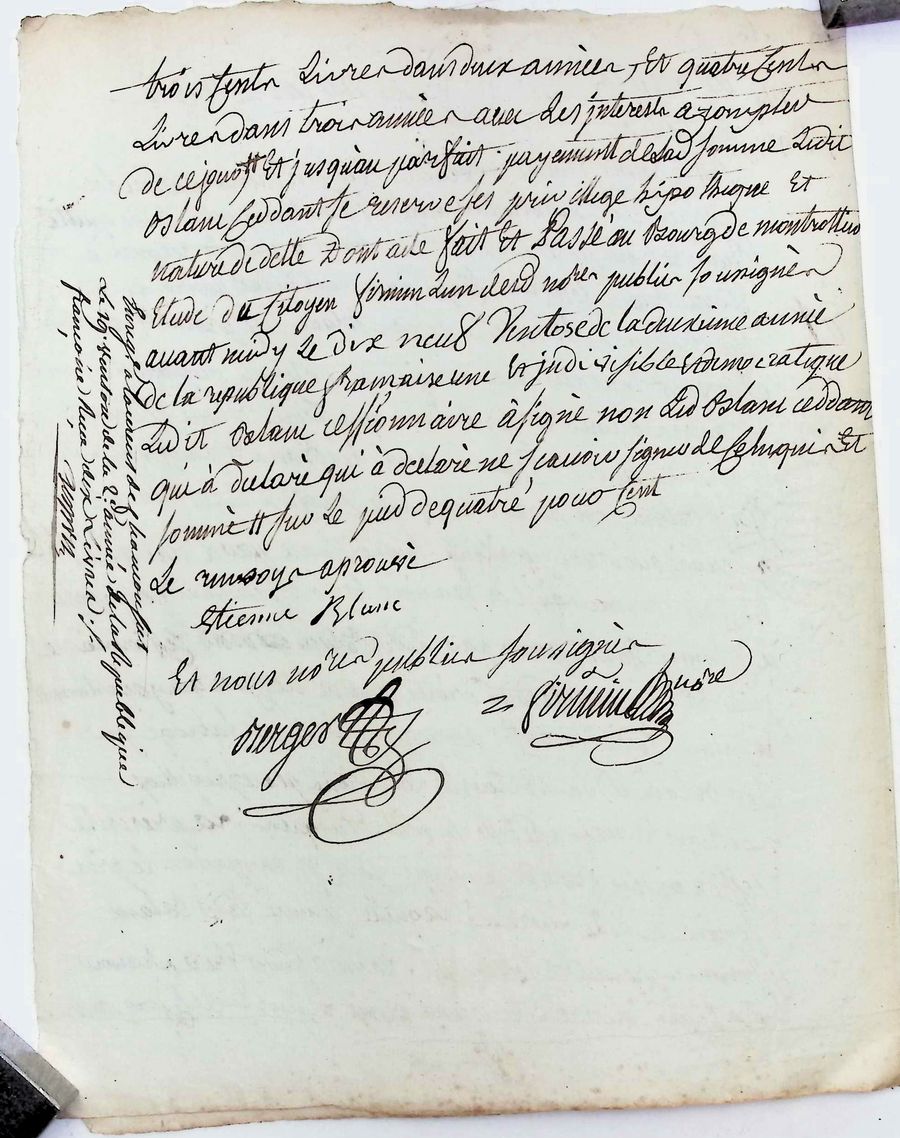 trois cents Livres dans deux années, Et quatre Cents
Livres dans trois années avec des jnterests a compter
de cejour # Et jusquau parfait payement de Lad somme Ledit
Blanc Ceddant se reserve ses privillege hipotheque Et
nature de dette Dont acte fait Et Passé au Bourg de montrottier
Etude du Citoyen firmin nore public soussignés
avant midy Le dix neuf Ventose de la deuxieme année
de la republique francaise une Et jndivisible Et democratique
Ledit Blanc cessionnaire à signé non Led Blanc Ceddant
qui à declaré qui à declaré ne scavoir signer de Ce Enquis Et
sommé # sur Le pied de quatre pour Cent
Le renvoy aprouvé
Etienne Blanc
Et nous nores publics soussignés
Berger
firmin nore
Le 19 ventose de la 2e année de la Republique
francoise Recu deux Livres